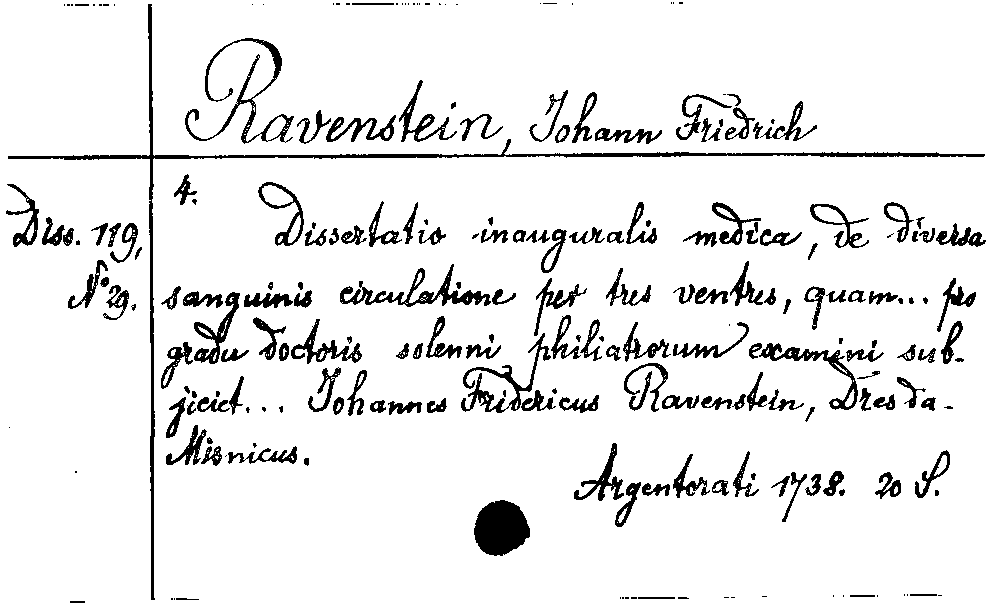 Ravenstein, Johann Friedrich
4.
Diss. 119,
N° 29.
Dissertatio inauguralis medica, de diversa
sanguinis circulatione per tres ventres, quam... pro
gradu doctoris solenni philiatrorum examini sub-
jiciet... Johannes Fridericus Ravenstein, Dresda-
Misnicus.
Argentorati 1738. 20 S.